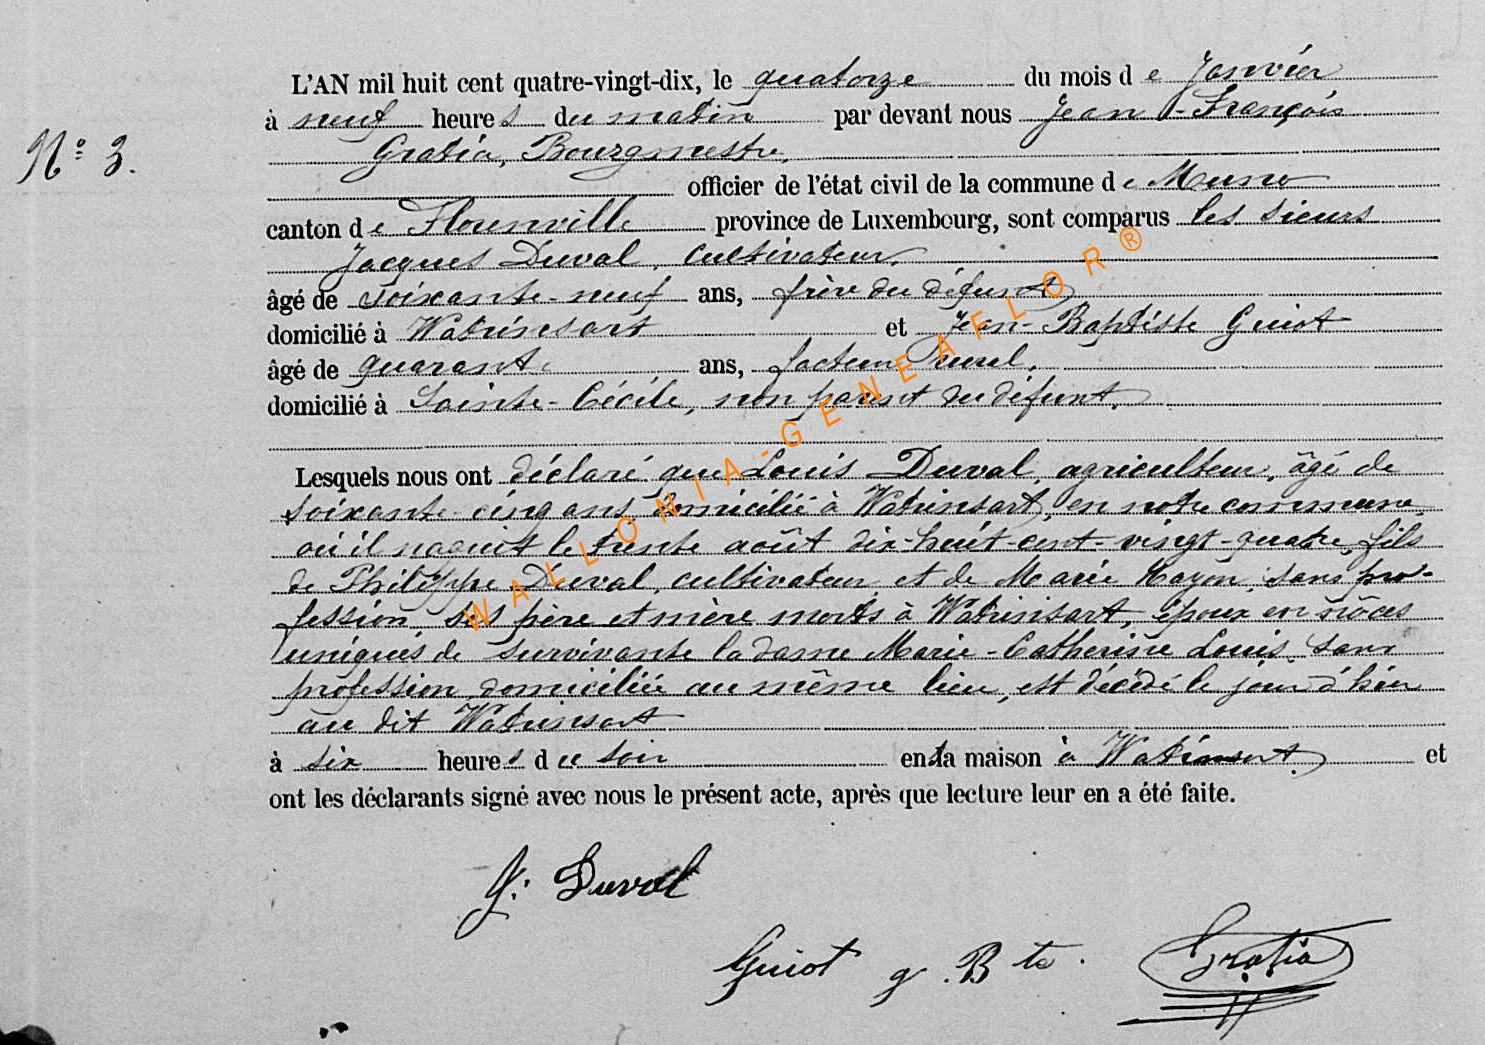 L'AN mil huit cent quatre-vingt-dix, le quatorze du mois de Janvier
à neuf heures du matin par devant nous Jean-François
N° 3.
Gratia, Bourgmestre,
officier de l'état civil de la commune de Muno
canton de Florenville province de Luxembourg, sont comparus les sieurs
Jacques Duval, cultivateur,
âgé de soixante-neuf ans, frère du défunt
domicilié à Watrinsart et Jean-Baptiste Guiot
âgé de quarante ans, facteur rural,
domicilié à Sainte-Cécile, non parent du défunt,
Lesquels nous ont déclaré que Louis Duval, agriculteur, âgé de
soixante-cinq ans, domicilié à Watrinsart, en notre commune,
où il naquit le trente août dix-huit-cent-vingt-quatre, fils
de Philippe Duval, cultivateur, et de Marie Hayon, sans pro-
fession, ses père et mère morts à Watrinsart, époux en nôces
uniques de survivante la dame Marie-Catherine Louis, sans
profession, domiciliée au même lieu, est décédé le jour d'hier
au dit Watrinsart
à six heures du soir en sa maison à Watrinsart, et
ont les déclarants signé avec nous le présent acte, après que lecture leur en a été faite.
J. Duval
Guiot J. Bte.
Gratia
WALLONIA-GENEAFLOR®